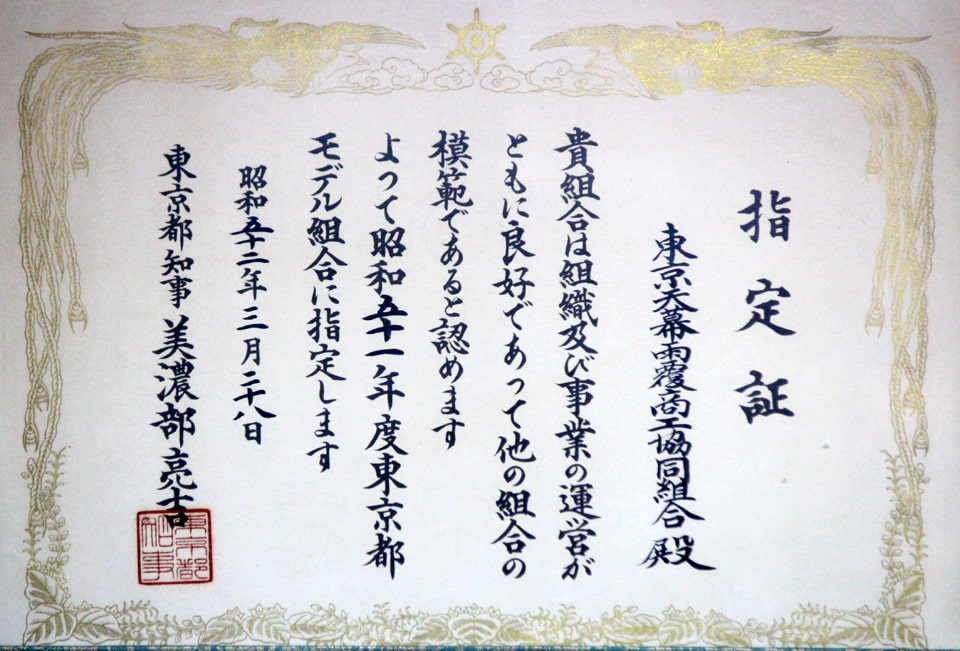 指定証
東京天幕雨覆商工協同組合 殿
貴組合は組織及び事業の運営が
ともに良好であって他の組合の
模範であると認めます
よって昭和五十一年度東京都
モデル組合に指定します
昭和五十二年三月二十八日
東京都知事 美濃部亮吉
東京都
知事